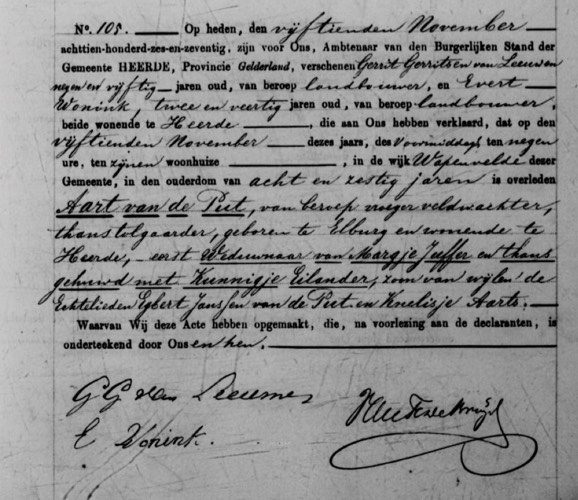 No. 105. Op heden, den vijftienden November
achttien-honderd-zes-en-zeventig, zijn voor Ons, Ambtenaar van den Burgerlijken Stand der
Gemeente HEERDE, Provincie Gelderland, verschenen Gerrit Gerritsen van Leeuwen
negen en vijftig jaren oud, van beroep landbouwer, en Evert
Wonink, twee en veertig jaren oud, van beroep landbouwer,
beide wonende te Heerde, die aan Ons hebben verklaard, dat op den
vijftienden November dezes jaars, des Voormiddags ten negen
ure, ten zijnen woonhuize, in de wijk Wapenvelde dezer
Gemeente, in den ouderdom van acht en zestig jaren is overleden
Aart van de Put, van beroep vroeger veldwachter,
thans tolgaarder, geboren te Elburg en wonende te
Heerde, eerst Weduwnaar van Margje Juffer en thans
gehuwd met Kunnigje Eilander, zoon van wijlen de
Echtelieden Egbert Janssen van de Put en Knelisje Aarts.
Waarvan Wij deze Acte hebben opgemaakt, die, na voorlezing aan de declaranten, is
onderteekend door Ons en hen.
G. G. van Leeuwen
E Wonink.